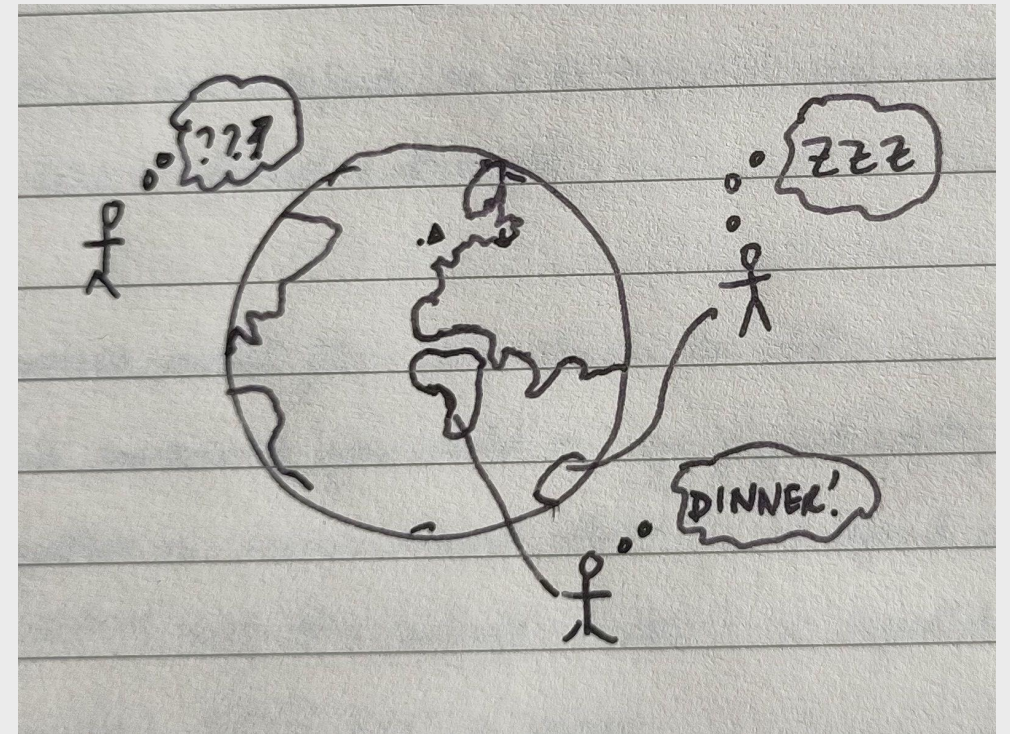 ???
ZZZ
DINNER!